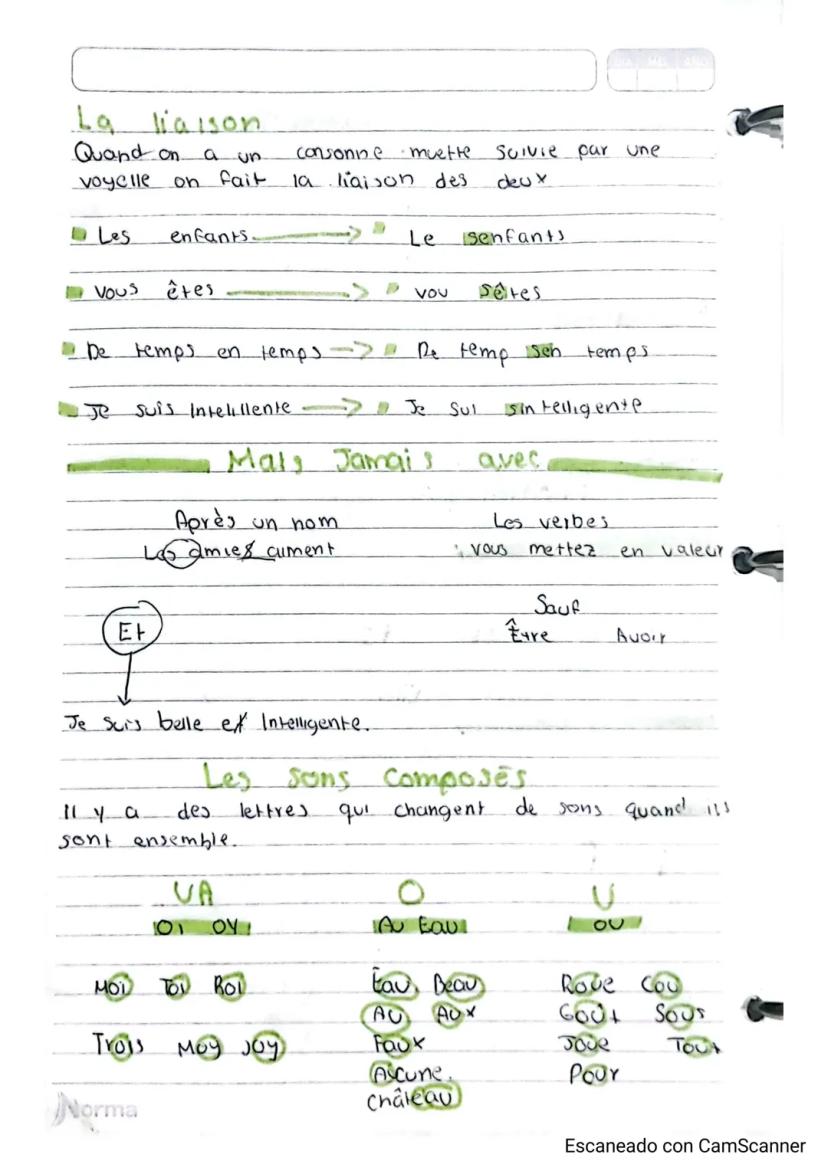 DIA MES AÑO
La liaison
Quand on a un consonne muette suivie par une
voyelle on fait la liaison des deux
Les enfants → Le senfants
Vous êtes → vou sêtes
De temps en temps → De temp sen temps
Je suis Intelillente → Je sui sintelligente
Mais Jamais avec
Après un nom Les verbes
Les amies aiment vous mettez en valeur
Sauf
Et Être Avoir
Je suis belle et Intelligente.
Les sons composés
Il y a des lettres qui changent de sons quand ils
sont ensemble.
UA O U
OI OY Au Eau OU
Moi Toi Roi Eau, Beau Roue Cou
Au Aux Goût Sous
Trois Moy Joy Faux Joue Tout
Aucune. Pour
Château
Norma
Escaneado con CamScanner